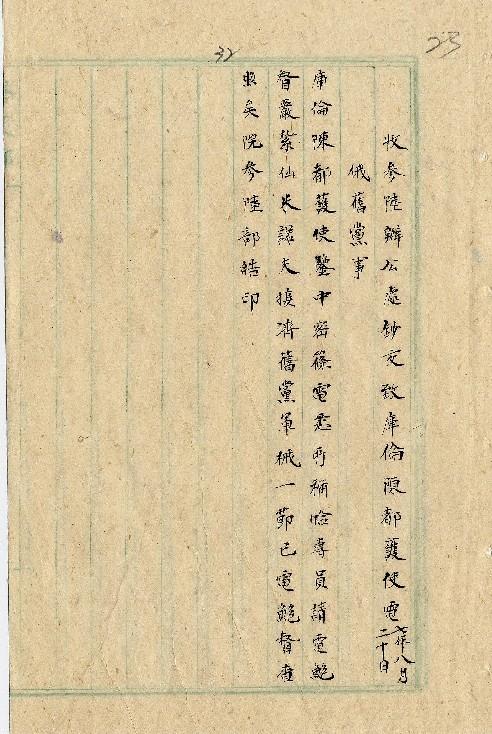 23
32
收參陸辦公處鈔交致庫倫陳都護使電七年八月二十日
俄舊黨事
庫倫陳都護使鑒中密篠電悉所稱恰專員請電鮑
督嚴紮仙米諾夫接濟舊黨軍械一節已電鮑督查
照矣院參陸部皓印